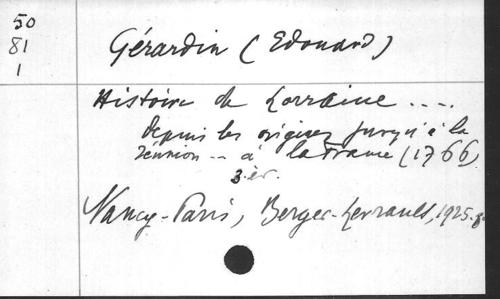 50
81
1
Gérardin (Edouard)
Histoire de Lorraine ....
depuis les origines jusqu'à la
réunion -- à la France (1766)
3 èr.
Nancy-Paris, Berger-Levrault, 1925. 8°